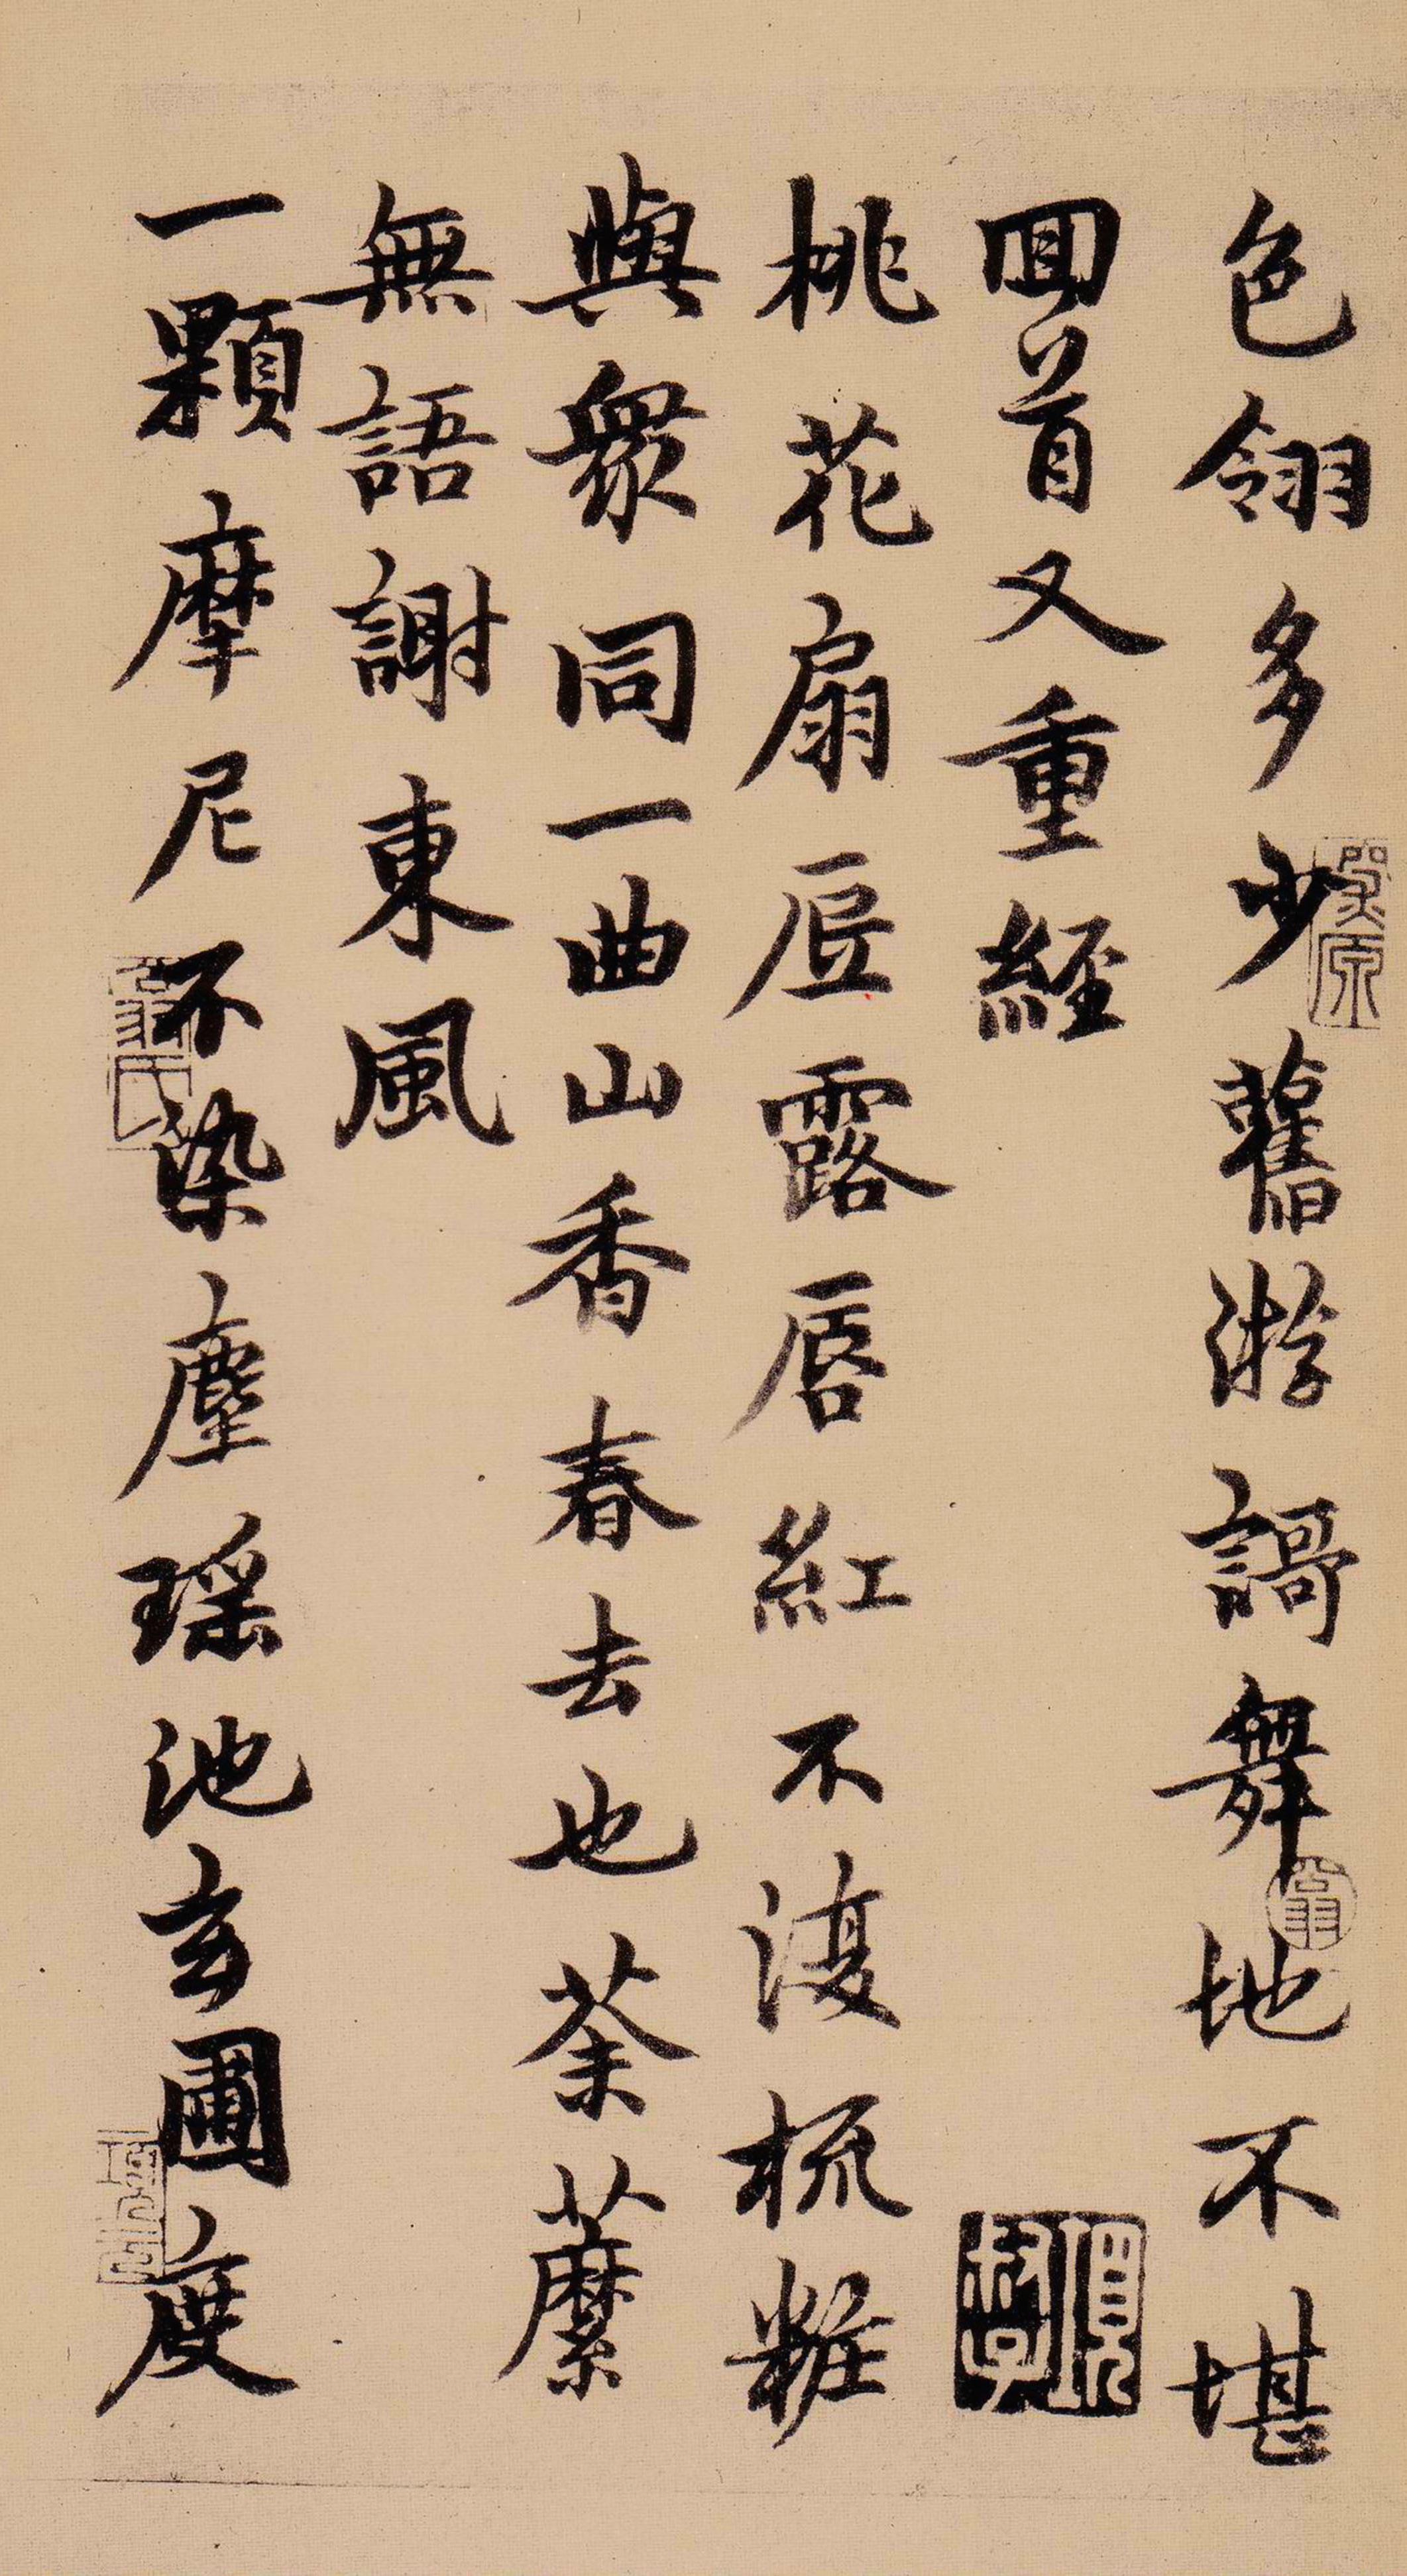 色翎多少舊游謌舞地不堪
囬首又重經
桃花扇露唇紅不復梳粧
與衆同一曲山香春去也荼䕷
無語謝東風
一顆摩尼不染塵瑶池玄圃度